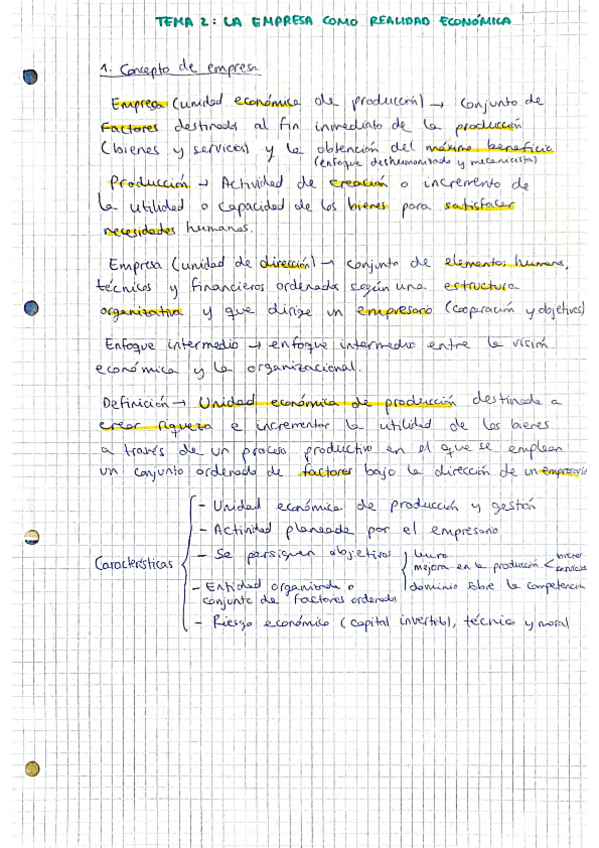 TEMA 2: LA EMPRESA COMO REALIDAD ECONÓMICA
1. Concepto de empresa
Empresa (unidad económica de producción) → conjunto de
factores destinados al fin inmediato de la producción
(bienes y servicios) y la obtención del máximo beneficio
(enfoque deshumanizado y mecanicista)
Producción → Actividad de creación o incremento de
la utilidad o capacidad de los bienes para satisfacer
necesidades humanas.
Empresa (unidad de dirección) → conjunto de elementos humanos,
técnicos y financieros ordenada según una estructura
organizativa y que dirige un empresario (cooperación y objetivos)
Enfoque intermedio → enfoque intermedio entre la visión
económica y la organizacional.
Definición → Unidad económica de producción destinada a
crear riqueza e incrementar la utilidad de los bienes
a través de un proceso productivo en el que se emplean
un conjunto ordenado de factores bajo la dirección de un empresario
Características
- Unidad económica de producción y gestión
- Actividad planeada por el empresario
- Se persiguen objetivos
lucro
mejora en la producción < bienes
servicios
dominio sobre la competencia
- Entidad organizada o
conjunto de factores ordenados
- Riesgo económico (capital invertido), técnico y moral